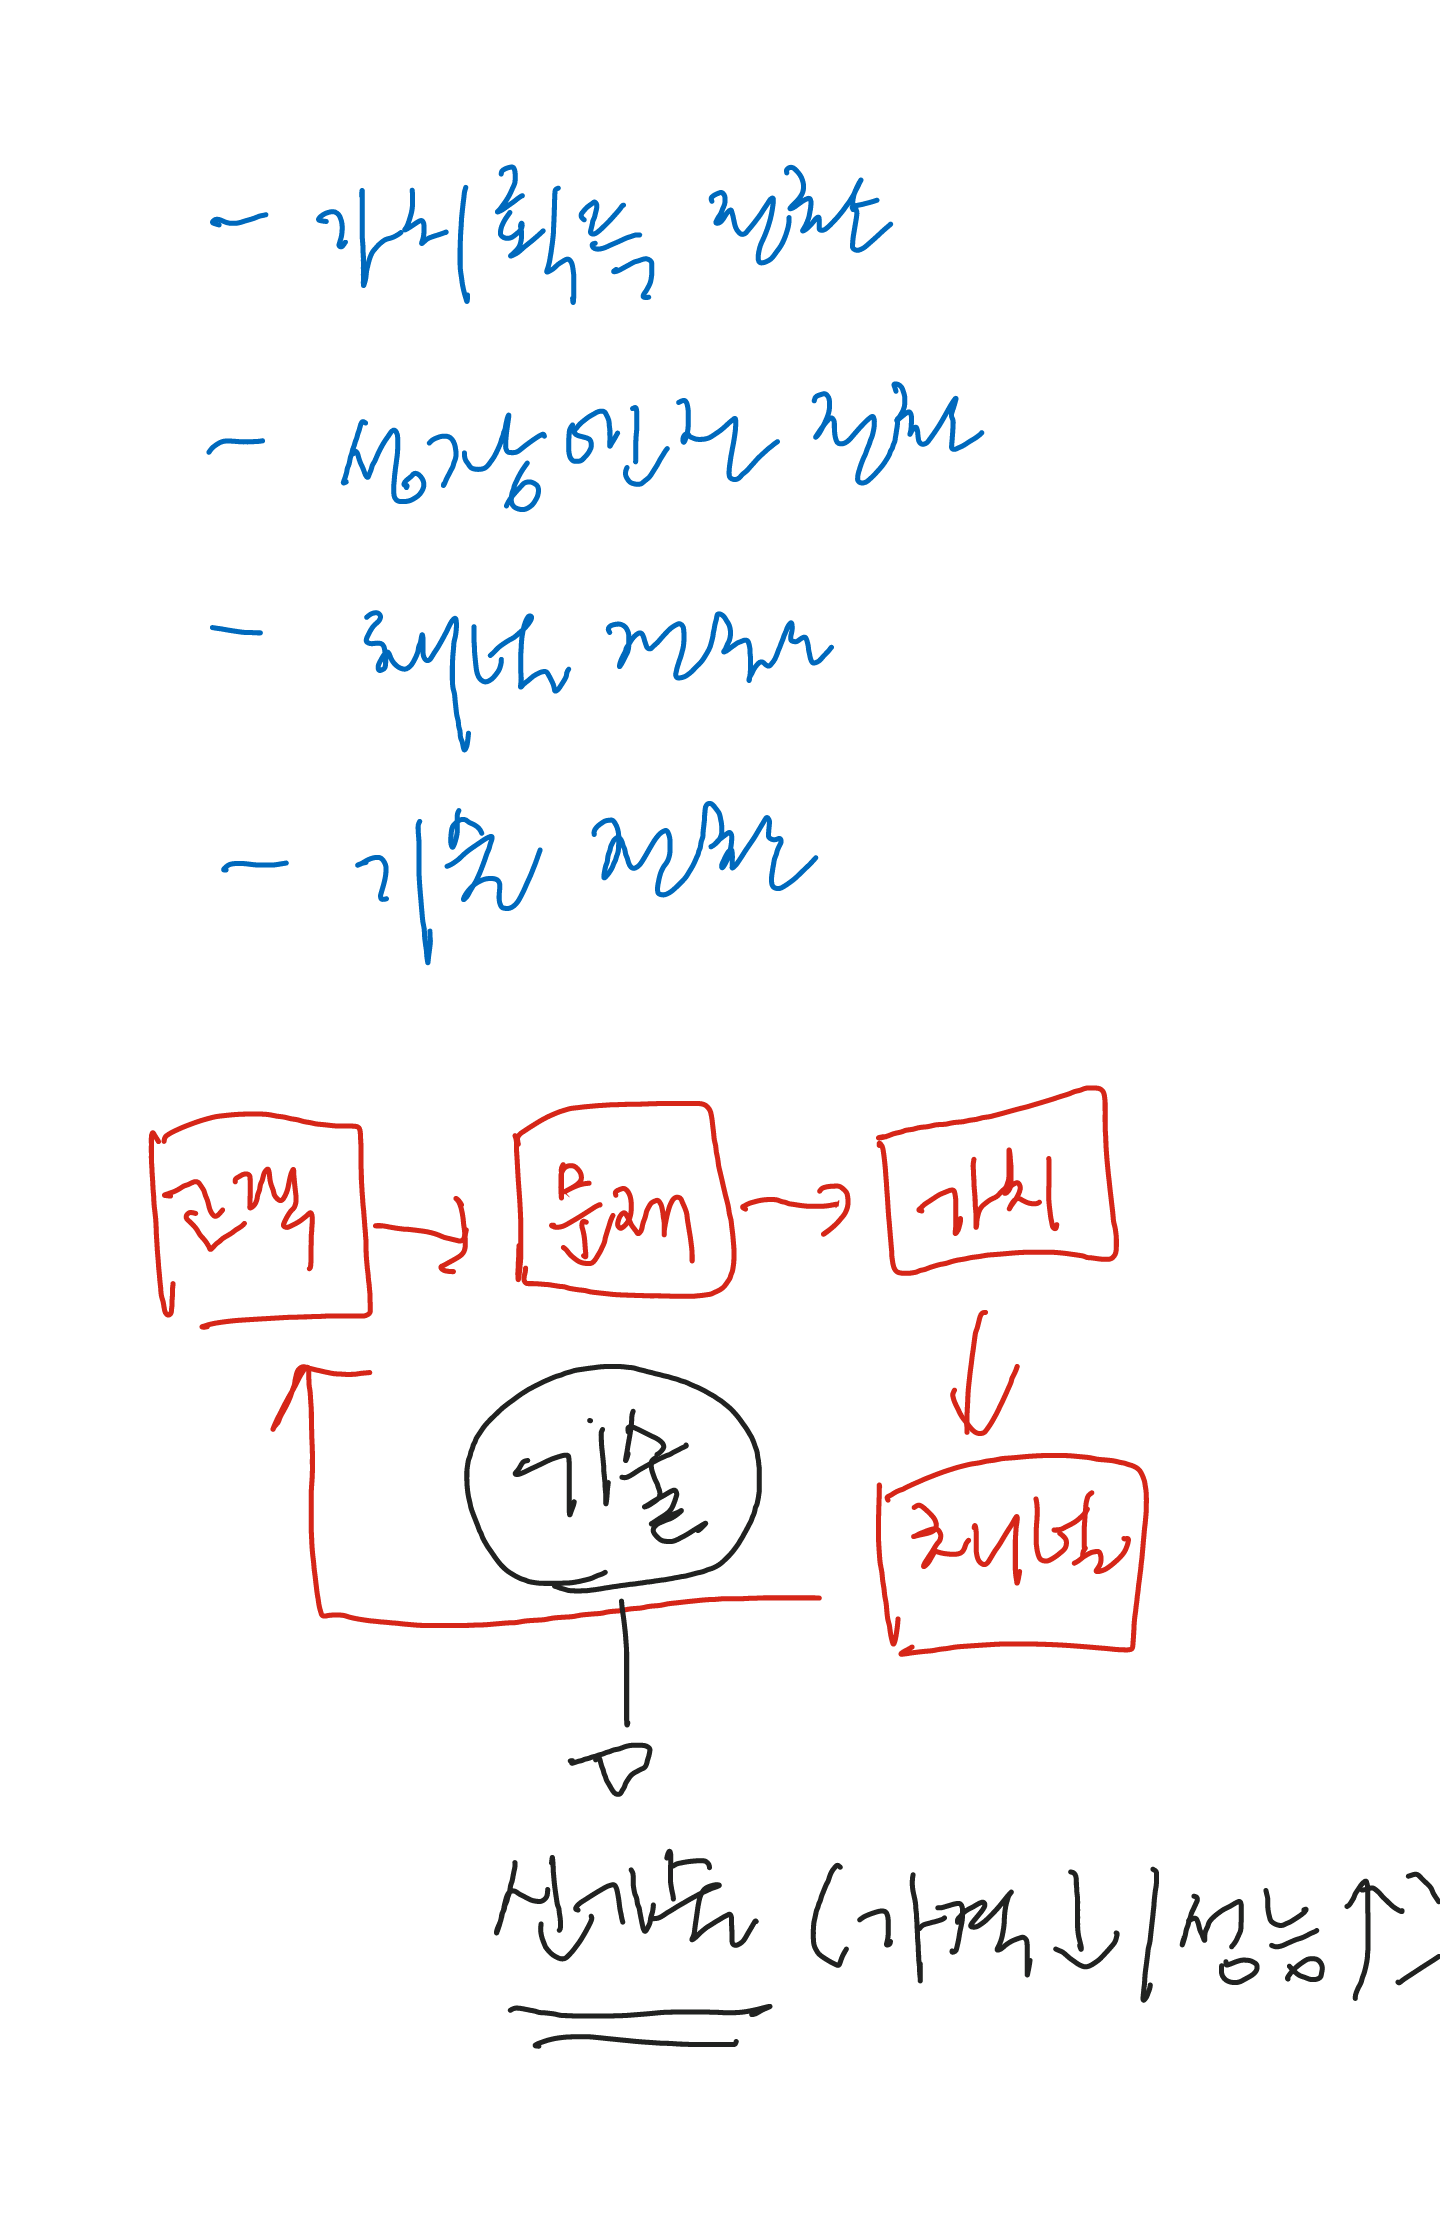 - 가치획득 전략
- 성장엔진 전략
- 채널 전략
- 기술 전략
고객 → 문제 → 가치
↓
기술
채널
신기술 (가격↓ / 성능↑)